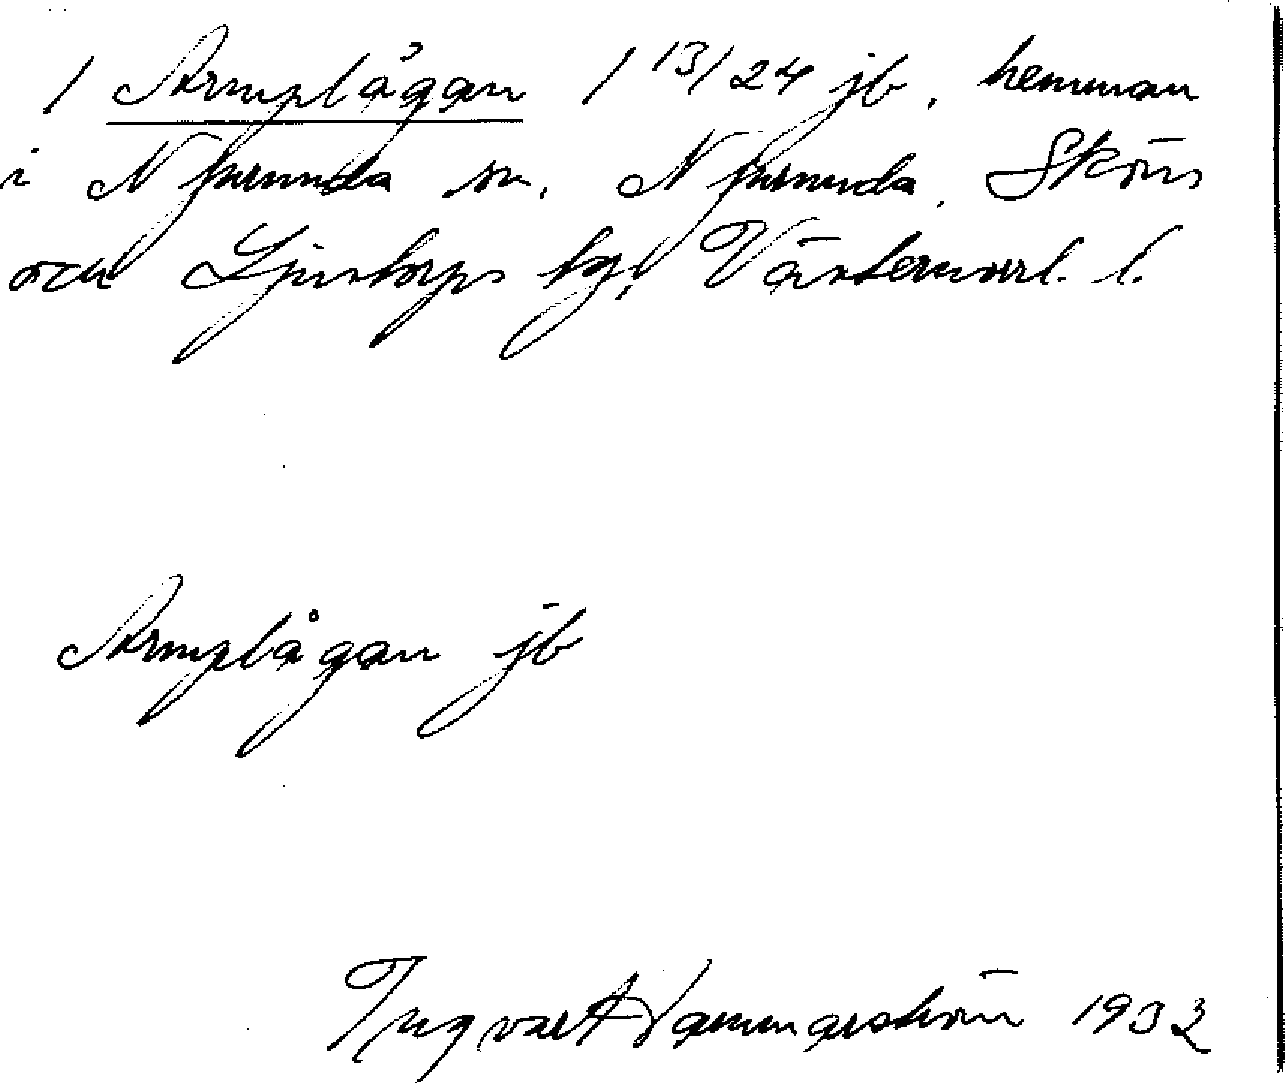 1 Armplågan 1 13/24 jb. hemman
i Njurunda sn, Njurunda, Sköns
och Ljustorps tgl Västernorrl. l.
Armplågan jb
Ingvar Hammarström 1932